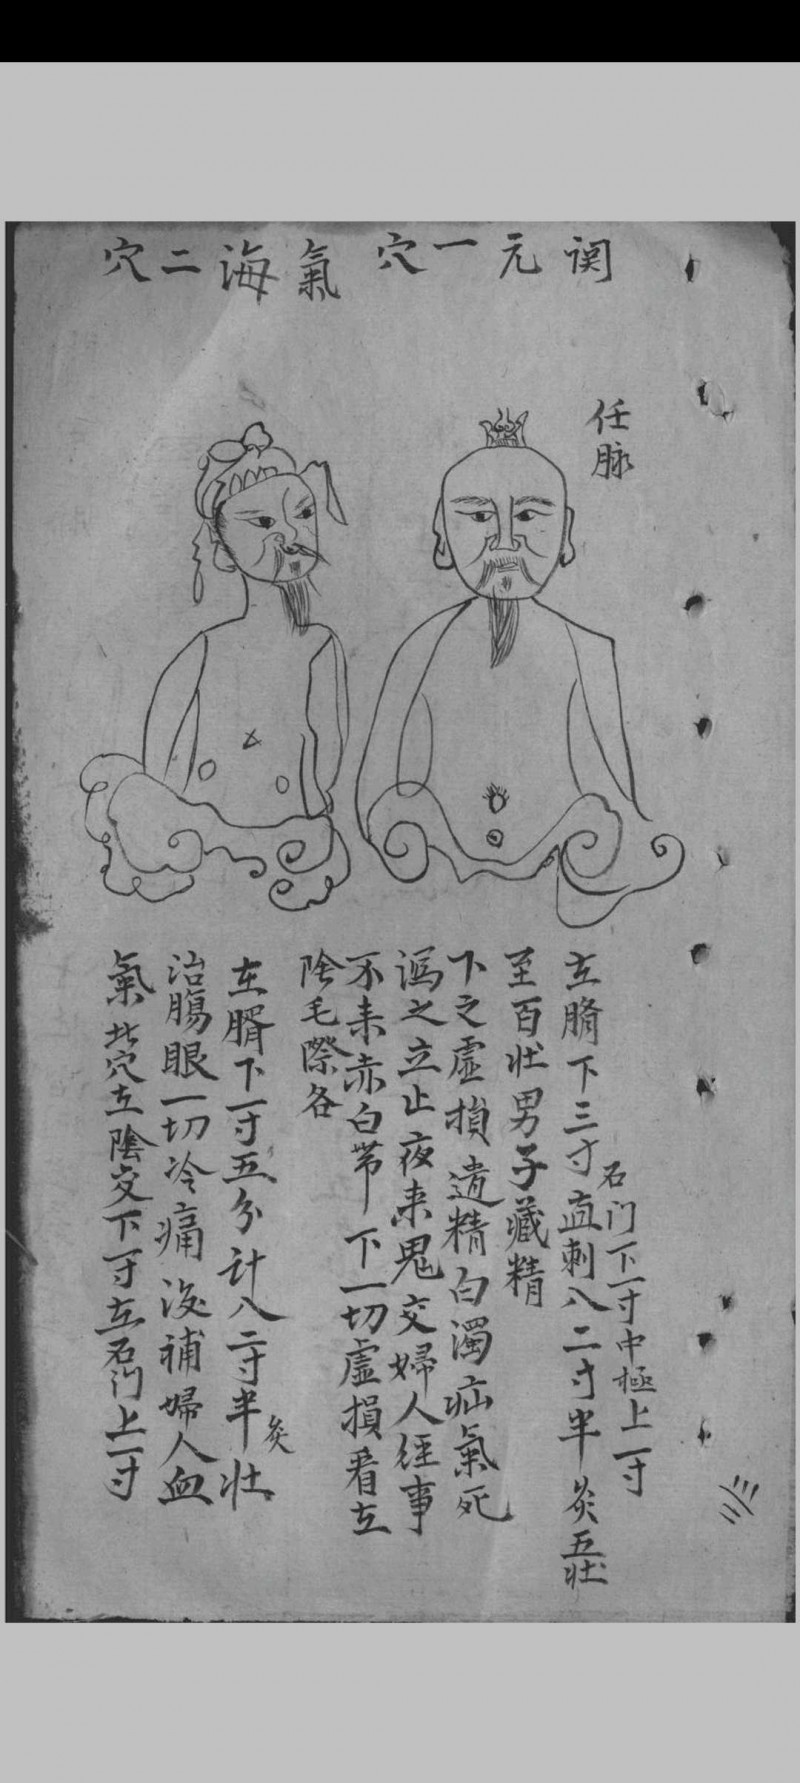 関元一穴
氣海二穴
任脉
在臍下三寸直刺入二寸半灸五壮
石门下一寸中極上一寸
至百壮男子藏精
下之虛損遺精白濁疝氣死
瀉之立止夜来鬼交婦人经事
不来赤白带下一切虛損看在
陰毛際各
在臍下一寸五分计入二寸半灸壮
治腸眼一切冷痛没補婦人血
氣此穴在陰交下一寸在石门上一寸